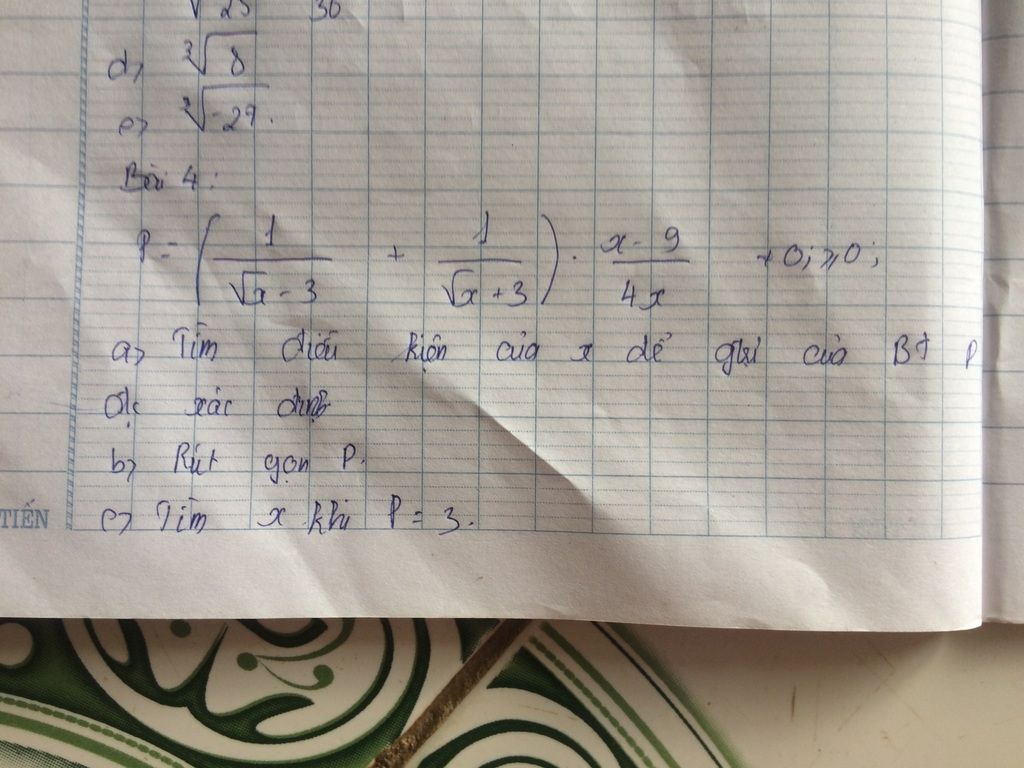 √25 36
d) ∛8
e) ∛-27.
Bài 4:
P = (1/(√x - 3) + 1/(√x + 3)) . (x - 9)/4x ≥0;
a) Tìm điều kiện của x để gtrị của BT P
đc xác định
b) Rút gọn P.
c) Tìm x khi P = 3.
TIẾN